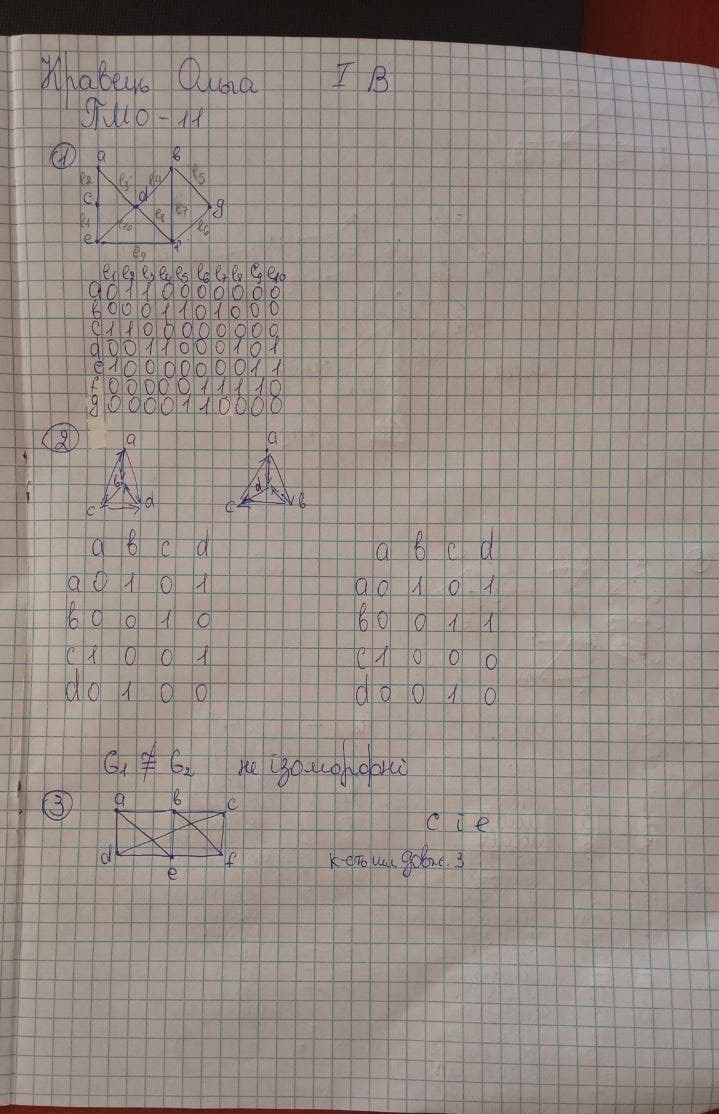 Кравець Ольга I В
ПМО-11
1
a b
e2 e3 e4 e5
c d g
e1 e10 e8 e7 e6
e f
e9
e1 e2 e3 e4 e5 e6 e7 e8 e9 e10
a 0 1 1 0 0 0 0 0 0 0
b 0 0 0 1 1 0 1 0 0 0
c 1 1 0 0 0 0 0 0 0 0
d 0 0 1 1 0 0 0 1 0 1
e 1 0 0 0 0 0 0 0 1 1
f 0 0 0 0 0 1 1 1 1 0
g 0 0 0 0 1 1 0 0 0 0
2
a a
b d
c d c b
a b c d a b c d
a 0 1 0 1 a 0 1 0 1
b 0 0 1 0 b 0 0 1 1
c 1 0 0 1 c 1 0 0 0
d 0 1 0 0 d 0 0 1 0
G1 ≢ G2 не ізоморфні
3
a b c
c і e
d e f
к-сть шл. довж. 3